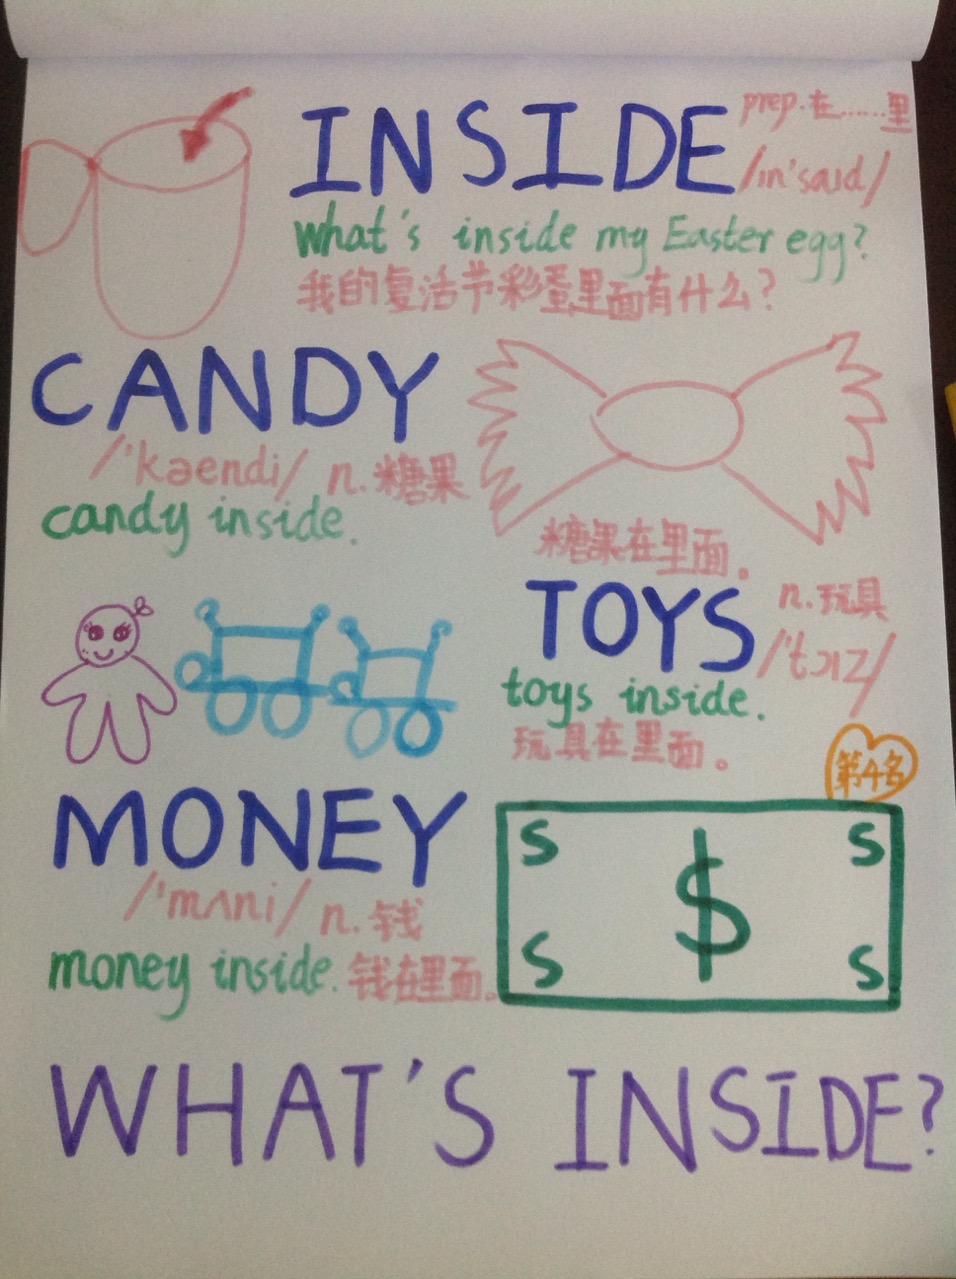 INSIDE prep.在......里
/ɪn'saɪd/
what's inside my Easter egg?
我的复活节彩蛋里面有什么?
CANDY
/'kəendi/ n.糖果
candy inside.
糖果在里面。
TOYS n.玩具
/'tɔɪz/
toys inside.
玩具在里面。
第4名
MONEY
/'mʌni/ n.钱
money inside. 钱在里面。
S S
$
S S
WHAT'S INSIDE?